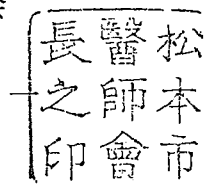 松本市
醫師會
長之印